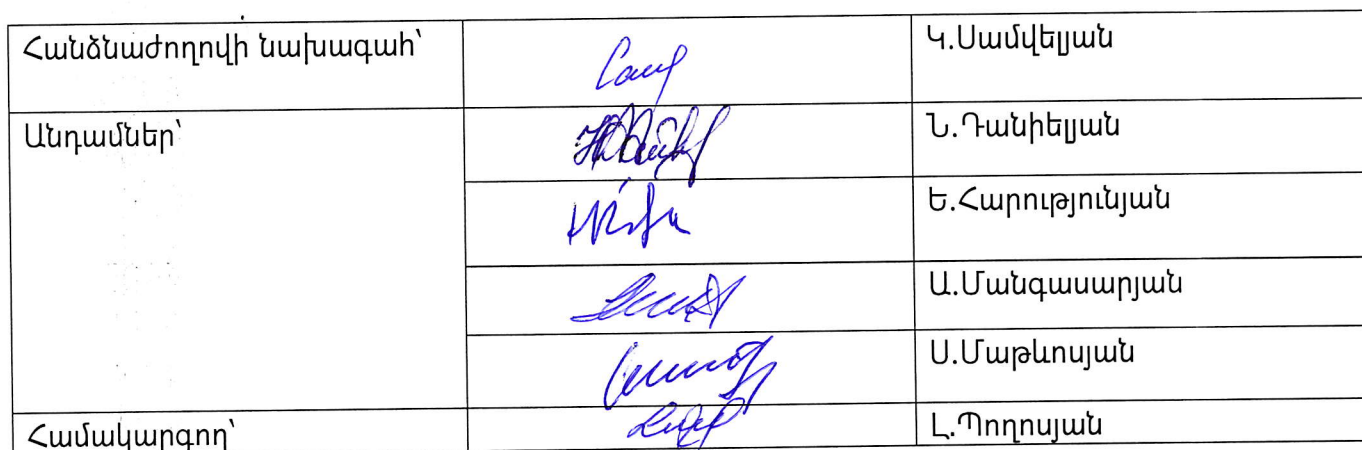 Հանձնաժողովի նախագահ՝ Կ.Սամվելյան
Անդամներ՝ Ն.Դանիելյան
Ե.Հարությունյան
Ա.Մանգասարյան
Ս.Մաթևոսյան
Համակարգող՝ Լ.Պողոսյան